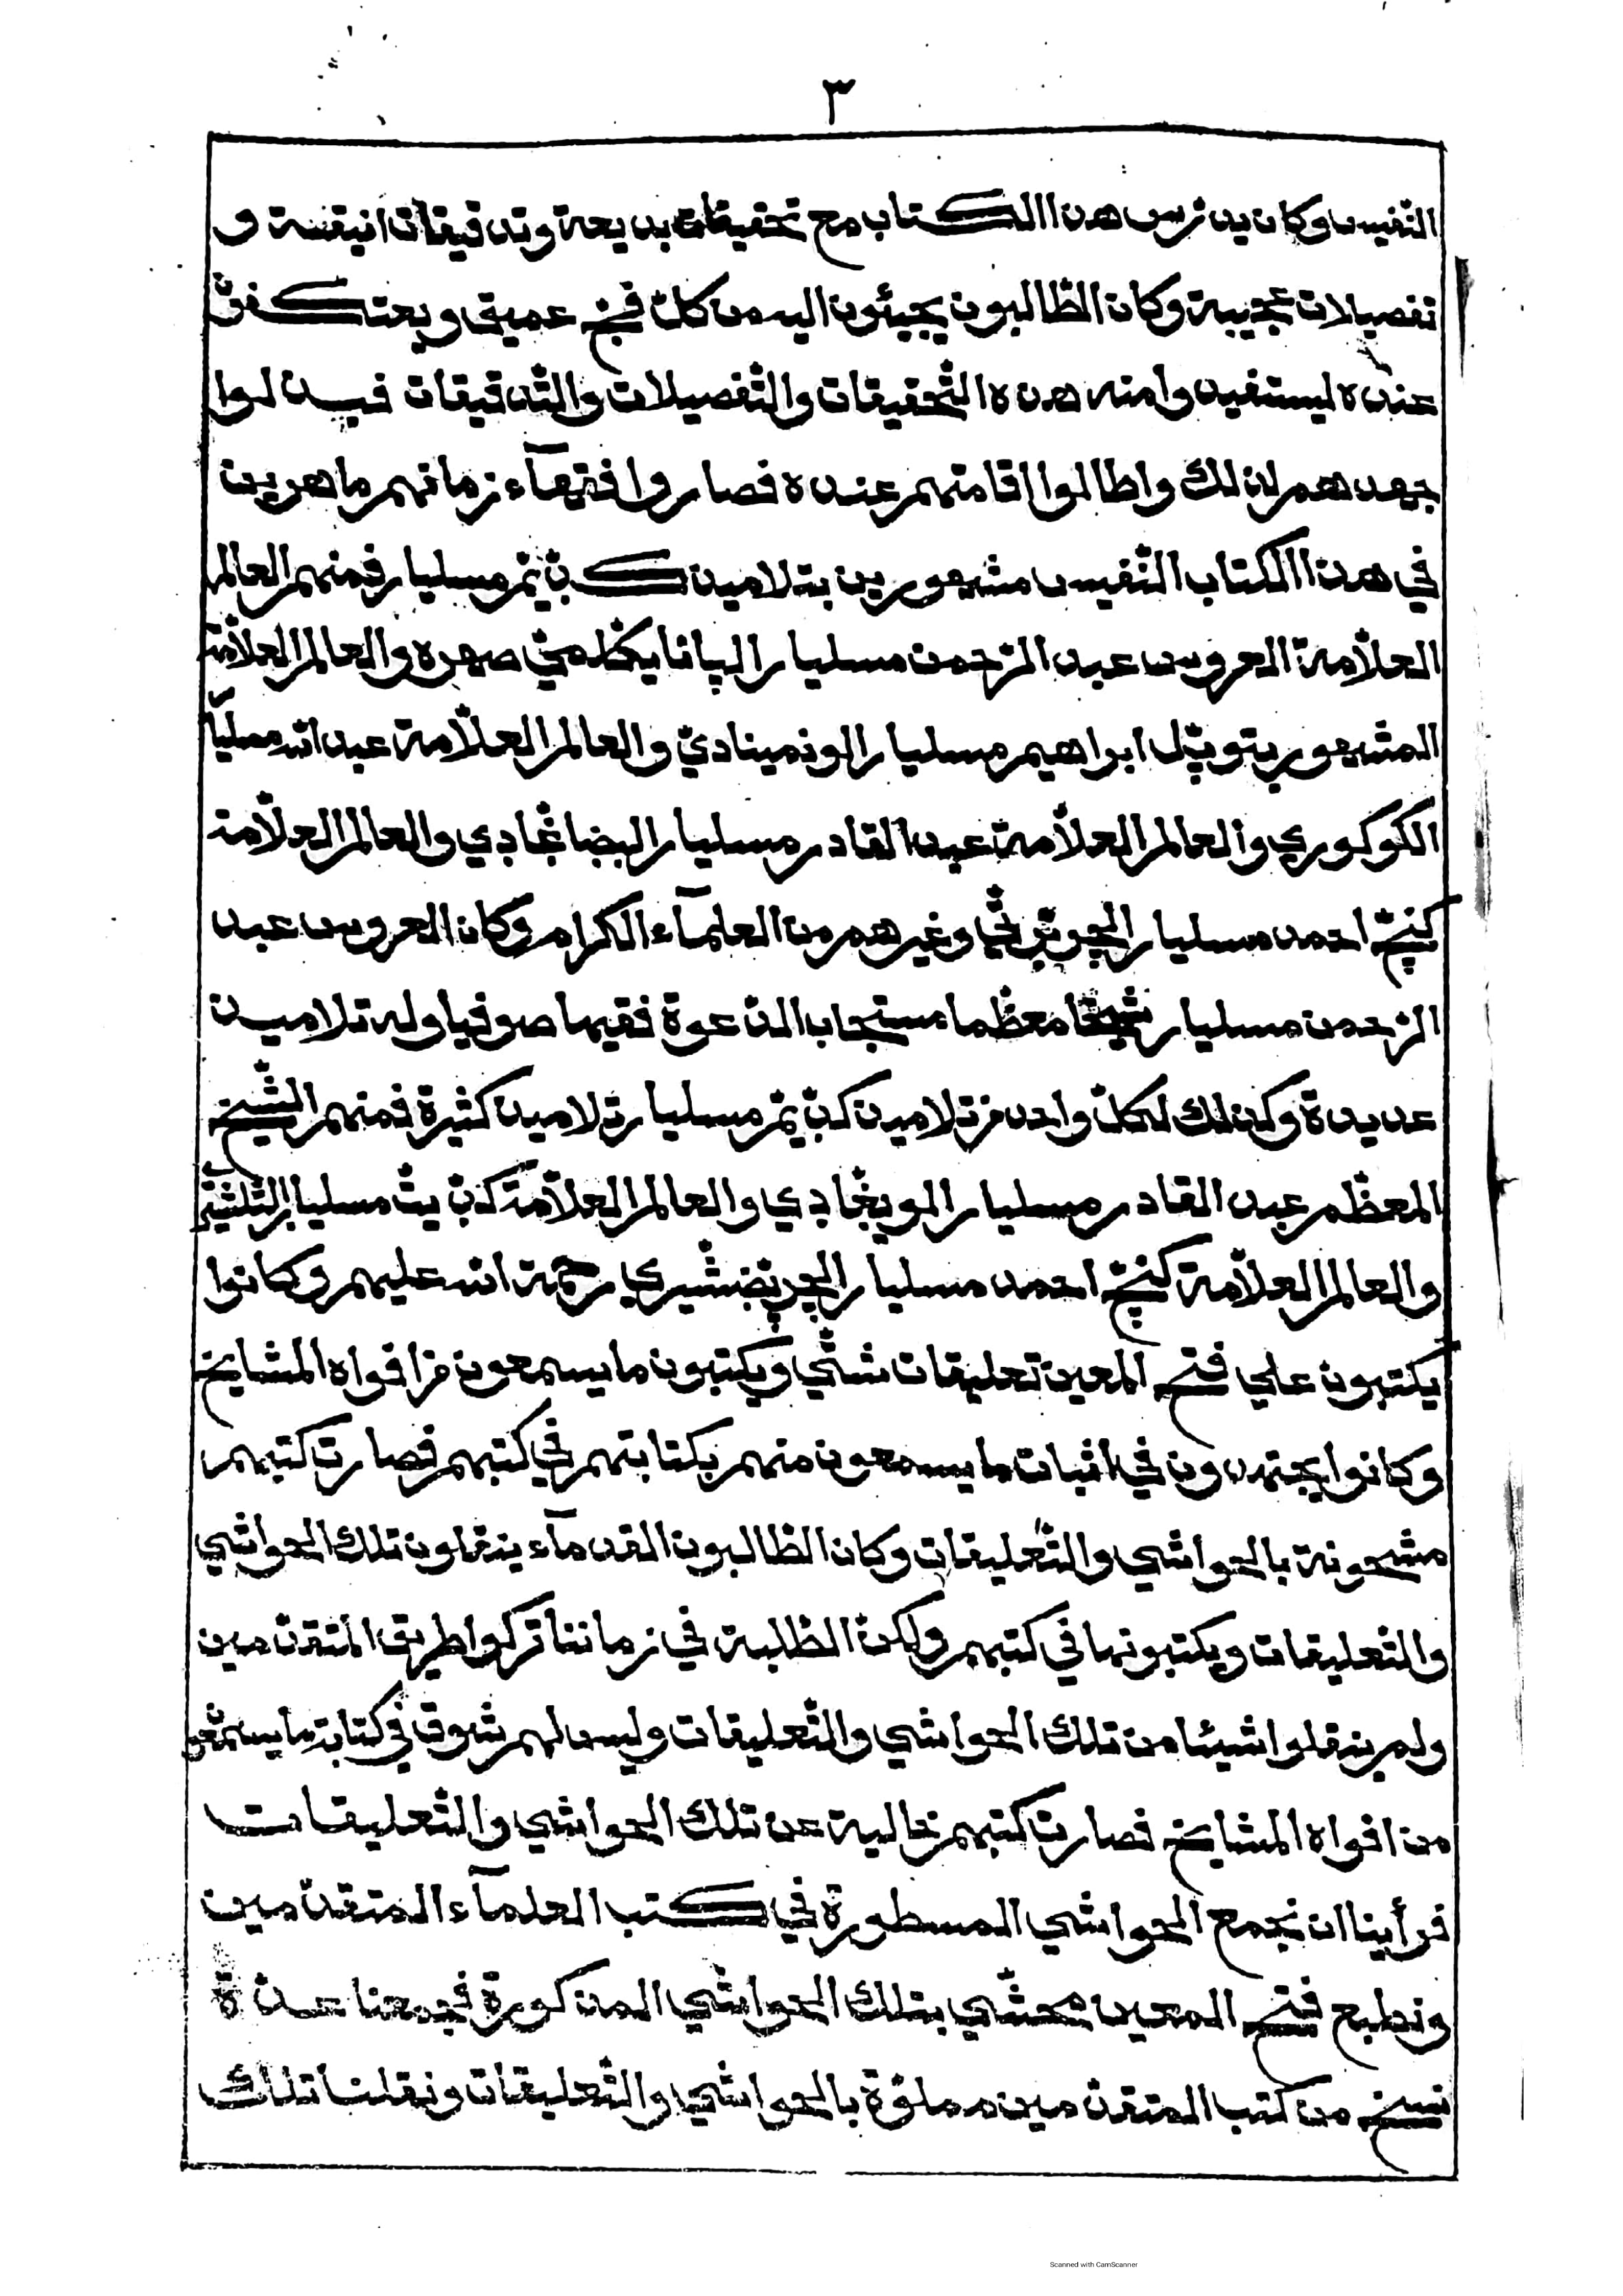 ٣
النّفيس وكان يدرّس هذا الكتاب مع تحقيقات بديعة وتدقيقات انيقسة و
تفصيلات عجيبة وكان الطّالبون يجيئون اليه من كلّ فجّ عميق ويعتكفون
عنده ليستفيدوا منه هذه التّحقيقات والتّفصيلات والتّدقيقات فبذلوا
جهدهم لذلك واطالوا اقامتهم عنده فصاروا فقهآء زمانهم ماهرين
في هذا الكتاب النّفيس مشهورين بتلاميذ مسليار فمنهم العالم
العلّامة العروس عبد الرّحمن مسليار صهره والعالم العلّامة
المشهور ابراهيم مسليار والعالم العلّامة عبد الله مسليار
الكوكوري والعالم العلّامة عبد القادر مسليار والعالم العلّامة
احمد مسليار وغيرهم من العلمآء الكرام وكان العروس عبد
الرّحمن مسليار شيخا معظّما مستجاب الدّعوة فقيها صوفيا وله تلاميذ
عديدة وكذلك لكلّ واحد من تلاميذ مسليار تلاميذ كثيرة فمنهم الشّيخ
المعظّم عبد القادر مسليار والعالم العلّامة مسليار
والعالم العلّامة احمد مسليار رحمة الله عليهم وكانوا
يكتبون علي فتح المعين تعليقات شتّي ويكتبون ما يسمعون من افواه المشايخ
وكانوا يجتهدون في اثبات ما يسمعون منهم بكتابتهم في كتبهم فصارت كتبهم
مشحونة بالحواشي والتّعليقات وكان الطّالبون القدمآء ينقلون تلك الحواشي
والتّعليقات ويكتبونها في كتبهم ولكنّ الطّلبة في زماننا تركوا طريق المتقدّمين
ولم ينقلوا شيئا من تلك الحواشي والتّعليقات وليس لهم شوق في كتابة ما يسمعون
من افواه المشايخ فصارت كتبهم خالية عن تلك الحواشي والتّعليقات
فرأينا ان نجمع الحواشي المسطورة في كتب العلمآء المتقدّمين
ونطبع فتح المعين محشّي بتلك الحواشي المذكورة فجمعنا عدّة
نسخ من كتب المتقدّمين مملوّة بالحواشي والتّعليقات ونقلنا تلك
Scanned with CamScanner